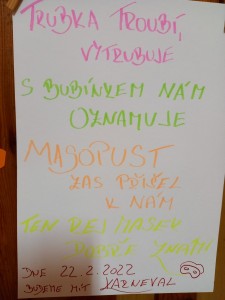 TRUBKA TROUBÍ,
VYTRUBUJE
S BUBÍNKEM NÁM
OZNAMUJE
MASOPUST
ZAS PŘIŠEL
K NÁM
TEN REJ MASEK
DOBŘE ZNÁM
DNE 22.2.2022
BUDEME MÍT KARNEVAL